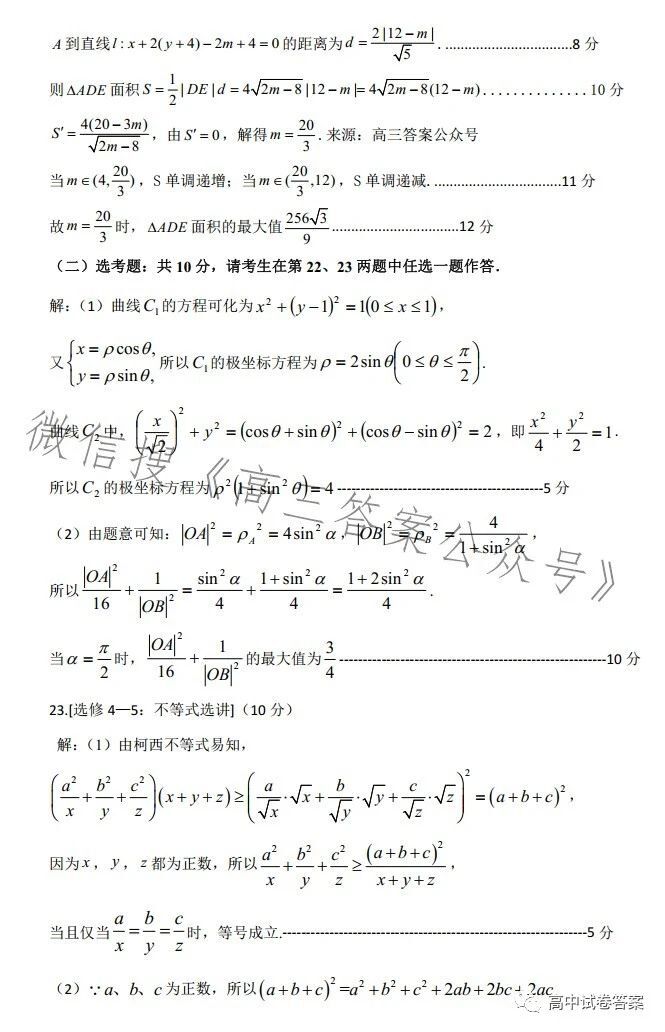 A 到直线 l : x + 2(y + 4) − 2m + 4 = 0 的距离为 d = 2|12 − m| / √5 . ................................8 分
则 ΔADE 面积 S = 1/2 |DE| d = 4√(2m − 8) |12 − m| = 4√(2m − 8) (12 − m). . . . . . . . . . . . . . 10 分
S′ = 4(20 − 3m) / √(2m − 8) ，由 S′ = 0 ，解得 m = 20/3 . 来源：高三答案公众号
当 m ∈ (4, 20/3) ，S 单调递增；当 m ∈ (20/3 ,12) ，S 单调递减. ................................11 分
故 m = 20/3 时， ΔADE 面积的最大值 256√3 / 9 ................................12 分
（二）选考题：共 10 分，请考生在第 22、23 两题中任选一题作答．
解:（1）曲线 C₁ 的方程可化为 x² + (y − 1)² = 1(0 ≤ x ≤ 1) ，
又 { x = ρ cos θ, y = ρ sin θ, 所以 C₁ 的极坐标方程为 ρ = 2 sin θ (0 ≤ θ ≤ π/2) .
曲线 C₂ 中， (x/√2)² + y² = (cos θ + sin θ)² + (cos θ − sin θ)² = 2 ，即 x²/4 + y²/2 = 1 .
所以 C₂ 的极坐标方程为 ρ²(1 + sin² θ) = 4 -------------------------------------------5 分
（2）由题意可知: |OA|² = ρ_A² = 4 sin² α ，|OB|² = ρ_B² = 4 / (1 + sin² α) ，
所以 |OA|²/16 + 1/|OB|² = sin² α / 4 + (1 + sin² α) / 4 = (1 + 2 sin² α) / 4 .
当 α = π/2 时， |OA|²/16 + 1/|OB|² 的最大值为 3/4 --------------------------------------------------------10 分
23.[选修 4—5：不等式选讲]（10 分）
解:（1）由柯西不等式易知，
(a²/x + b²/y + c²/z)(x + y + z) ≥ (a/√x · √x + b/√y · √y + c/√z · √z)² = (a + b + c)² ，
因为 x ， y ， z 都为正数，所以 a²/x + b²/y + c²/z ≥ (a + b + c)² / (x + y + z) ，
当且仅当 a/x = b/y = c/z 时，等号成立.----------------------------------------------------------------5 分
（2）∵ a、b、c 为正数，所以 (a + b + c)² = a² + b² + c² + 2ab + 2bc + 2ac
微信搜《高三答案公众号》
高中试卷答案